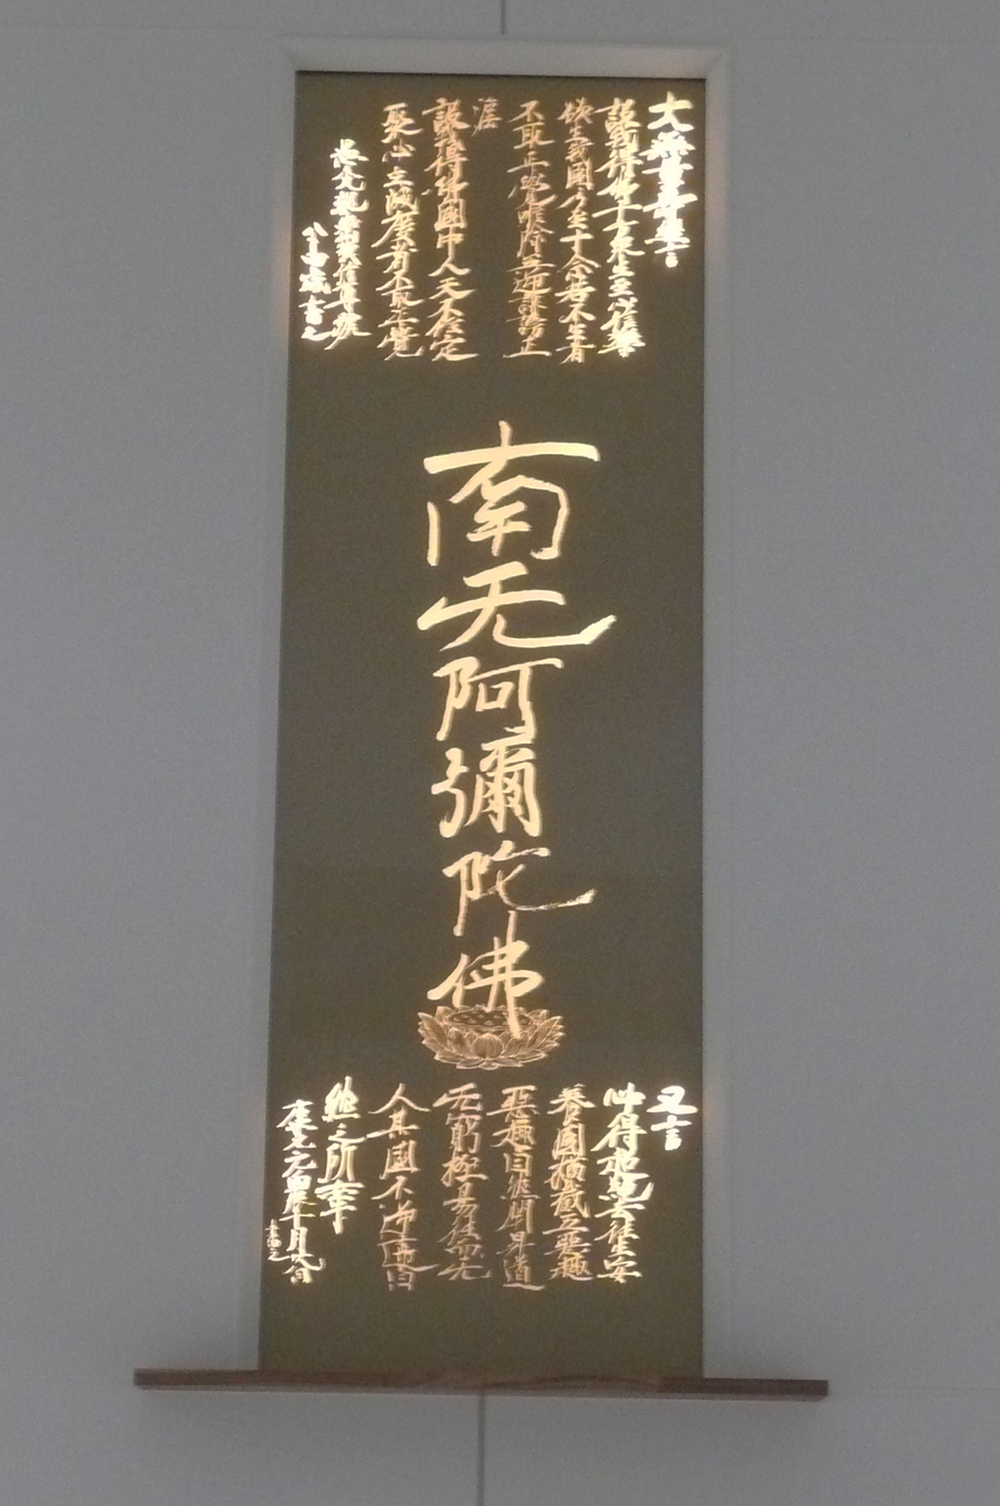 大無量壽經言
設我得佛十方衆生至心信樂
欲生我國乃至十念若不生者
不取正覺唯除五逆誹謗正
灋
設我得佛國中人天不住定
聚必至滅度者不取正覺
愚禿親鸞敬信尊號
八十四歳書之
南无阿彌陀佛
又言
必得超絶去往生安
養國横截五惡趣
惡趣自然閉昇道
无窮極易往而无
人其國不逆違自
然之所牽
康元元丙辰十月廿八日
書之